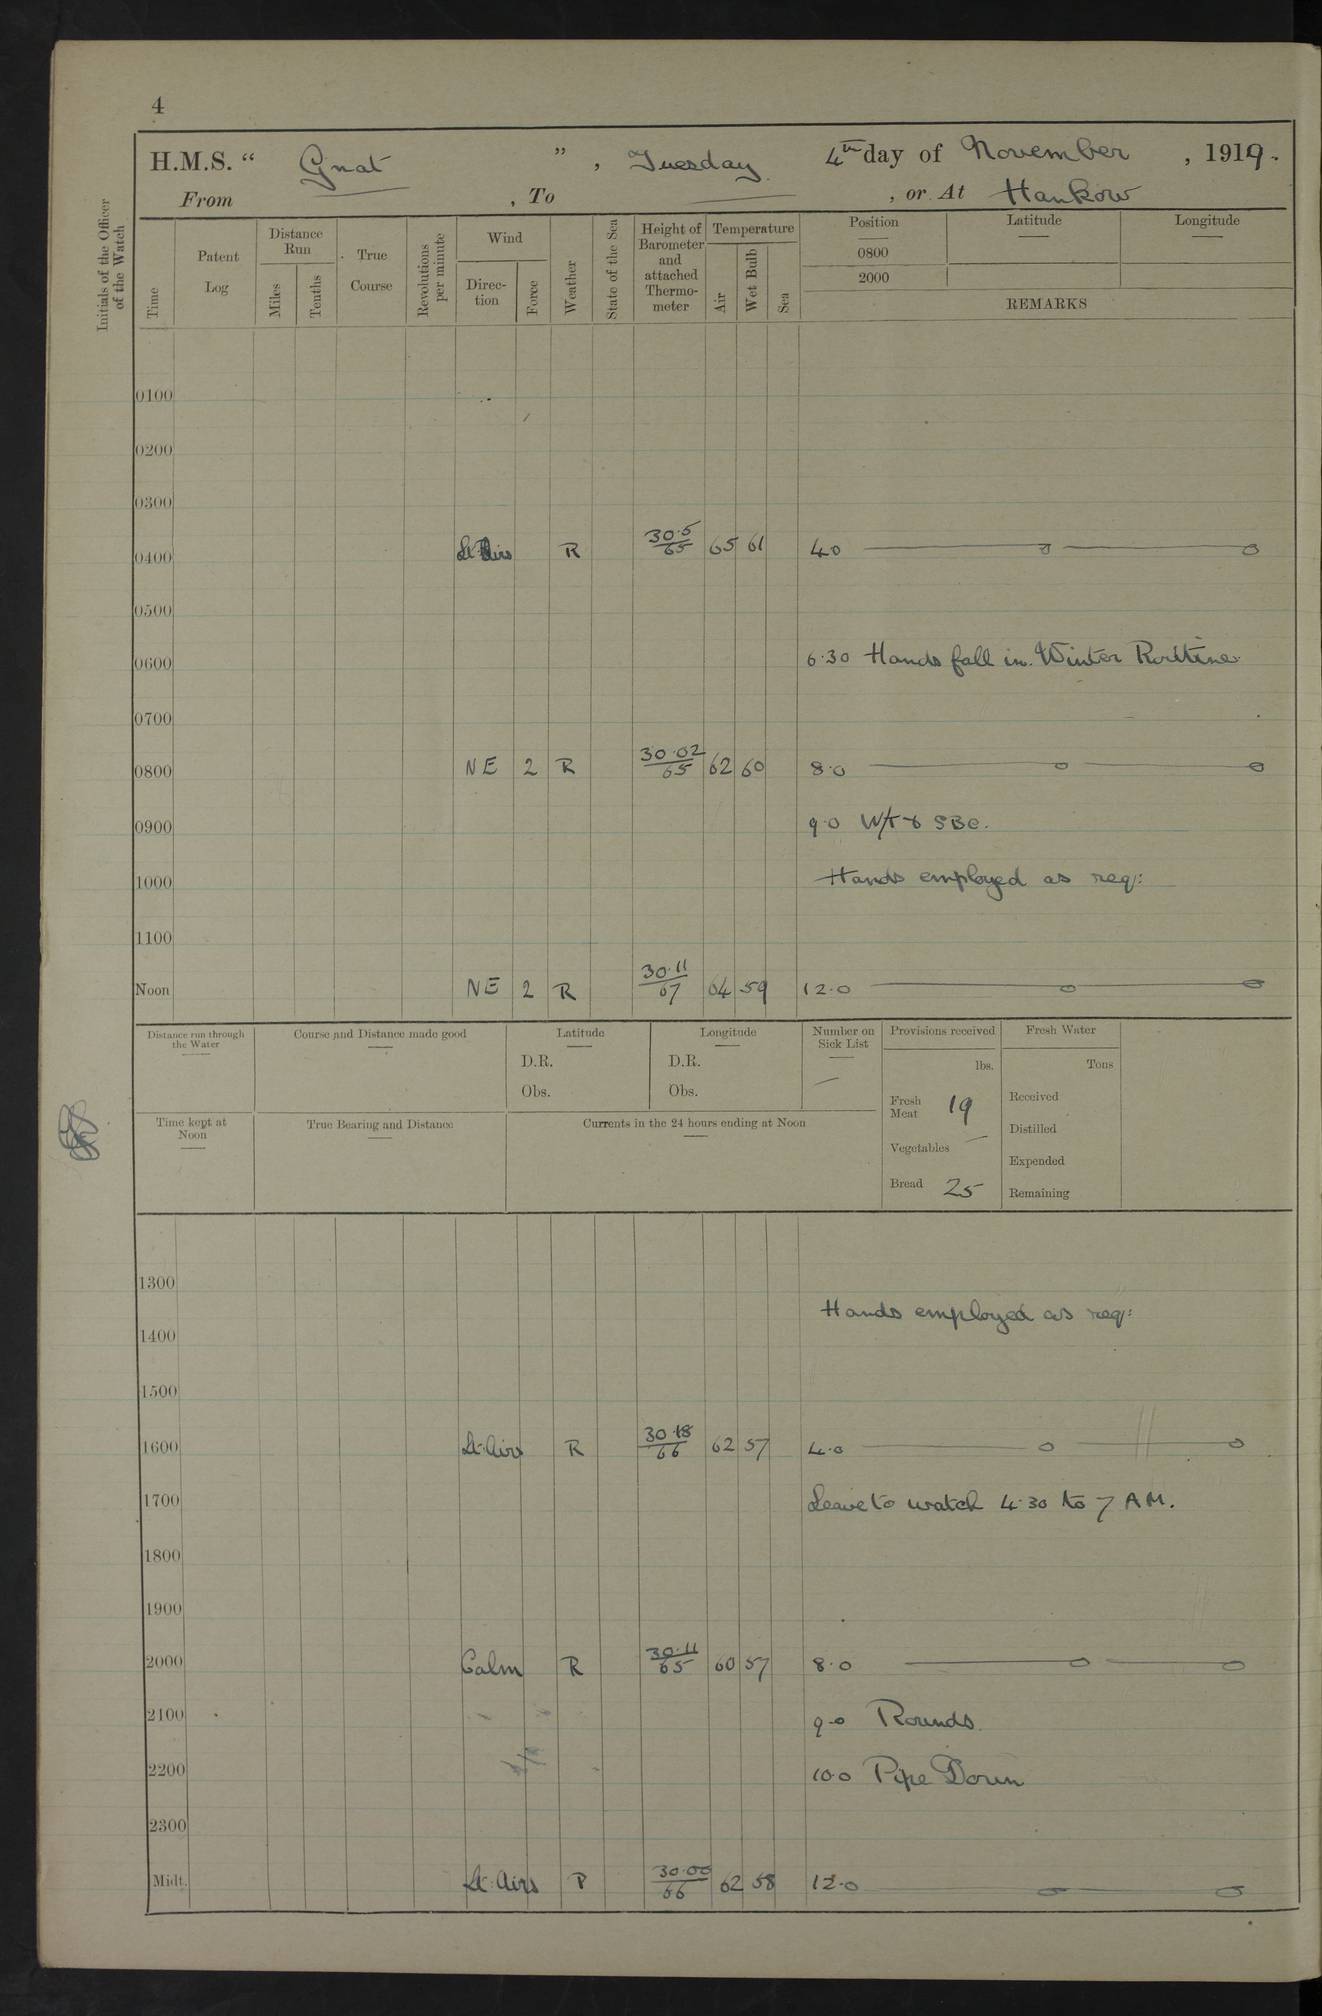 4
H.M.S. “ Gnat ” , Tuesday 4th day of November , 1919.
From , To , or At Hankow
Initials of the Officer of the Watch
Time
Patent Log
Distance Run
Miles
Tenths
True Course
Revolutions per minute
Wind
Direc-tion
Force
Weather
State of the Sea
Height of Barometer and attached Thermo-meter
Temperature
Air
Wet Bulb
Sea
Position
0800
2000
Latitude
Longitude
REMARKS
0100
0200
0300
0400 Lt Airs R 30·5/65 65 61 4.0
0500
0600 6·30 Hands fall in. Winter Routine.
0700
0800 NE 2 R 30·02/65 62 60 8·0
0900 9·0
1000 Hands employed as req:
1100
Noon NE 2 R 30·11/67 64 59 12·0
Distance run through the Water
Course and Distance made good
Latitude
D.R.
Obs.
Longitude
D.R.
Obs.
Number on Sick List
—
Provisions received
lbs.
Fresh Meat 19
Vegetables —
Bread 25
Fresh Water
Tons
Received
Distilled
Expended
Remaining
Time kept at Noon
True Bearing and Distance
Currents in the 24 hours ending at Noon
1300
Hands employed as req:
1400
1500
1600 Lt. Airs R 30·18/66 62 57 4·0
1700 Leave to watch 4·30 to 7 AM.
1800
1900
2000 Calm R 30·11/65 60 57 8·0
2100 9·0 Rounds.
2200 10·0 Pipe Down
2300
Midt. Lt. Airs R 30·00/66 62 58 12·0